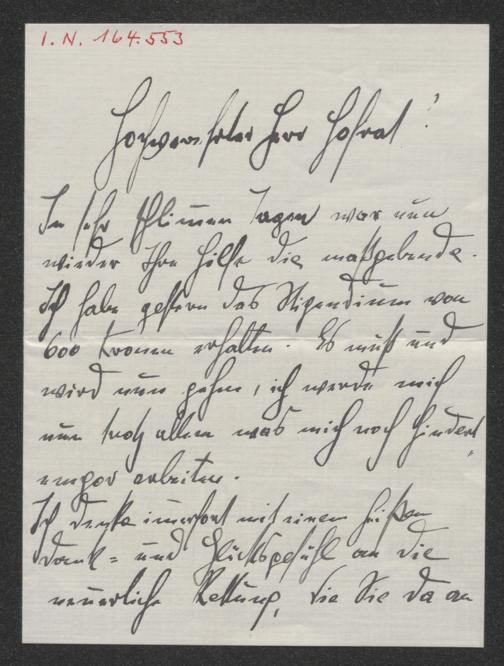 I. N. 164.553
Hochverehrter Herr Hofrat!
In sehr schlimmen Tagen war nun
wieder Ihre Hilfe die maßgebende.
Ich habe gestern das Stipendium von
600 Kronen erhalten. Es muß und
wird nun gehen, ich werde mich
nun trotz allem was mich noch hindert,
empor arbeiten.
Ich denke immerfort mit einem heißen
Dank- und Glücksgefühl an die
neuerliche Rettung, die Sie da an